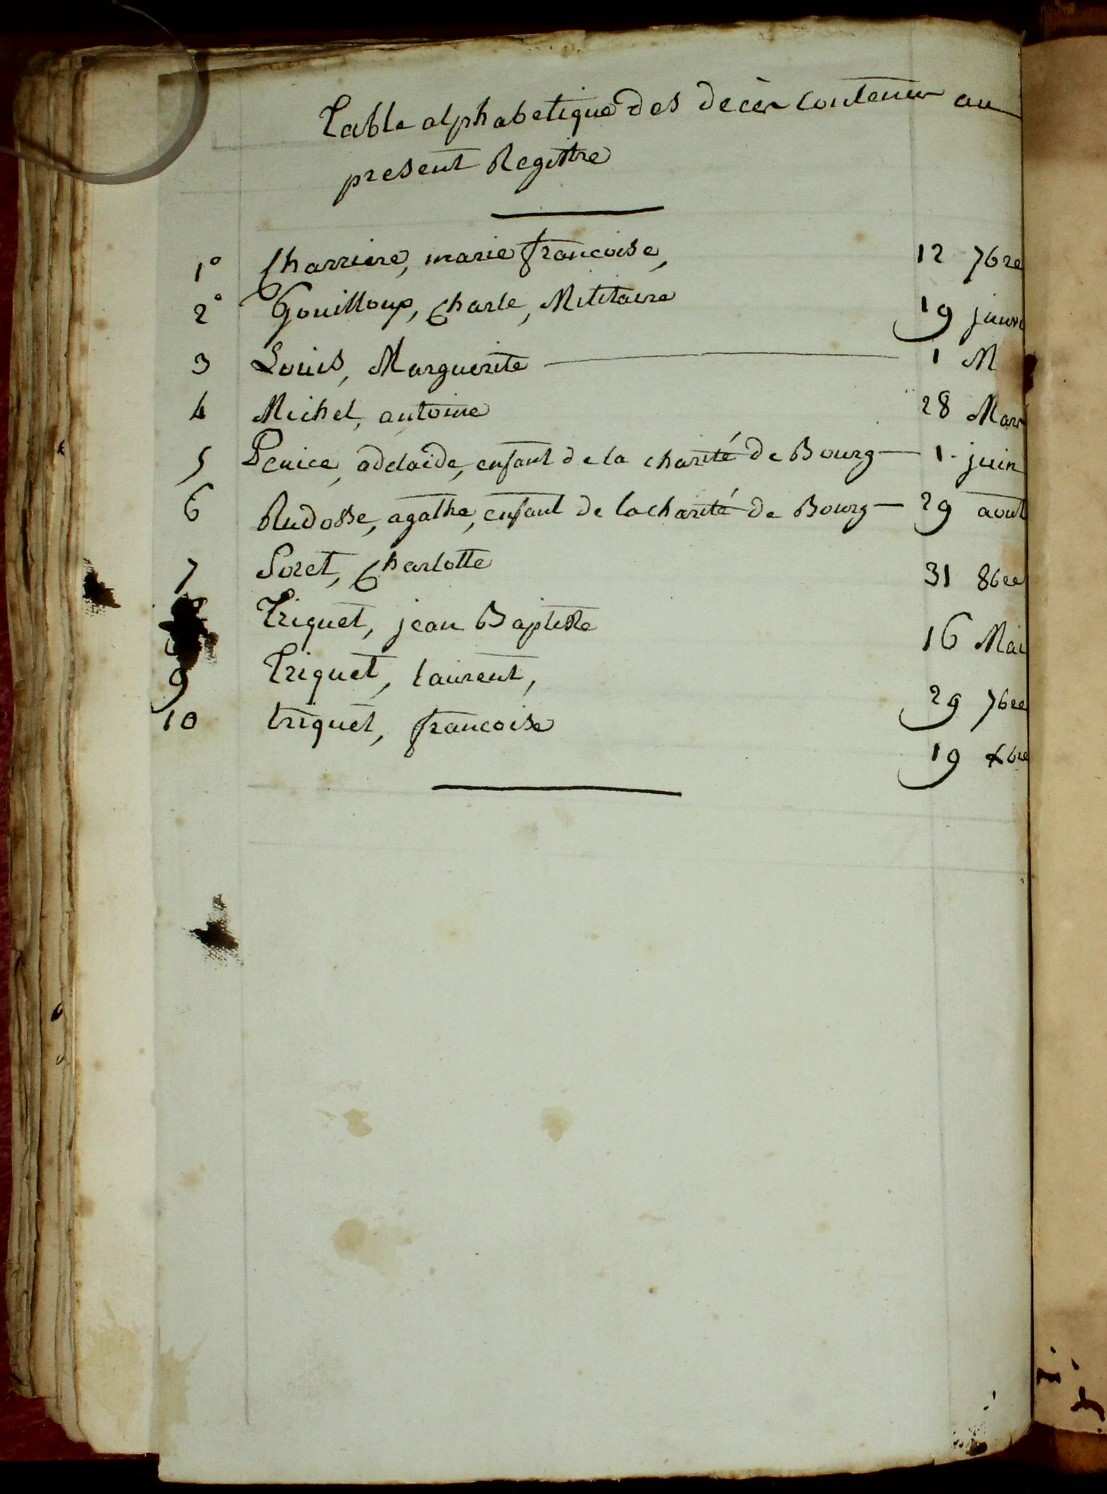 Table alphabetique des décès contenus au
present Registre
1° Charriere, marie francoise, 12 7bre
2° Gouilloup, Charle, Militaire 19 janv
3 Louis, Marguerite 1 M
4 Michel, antoine 28 Mars
5 Penice, adelaide, enfant de la charité de Bourg 1. juin
6 Rudosse, agathe, enfant de la charité de Bourg 29 aout
7 Soret, Charlotte 31 8bre
Triquet, jean Baptiste 16 Mai
9 Triquet, laurent, 29 7bre
10 triquet, francoise 19 xbre